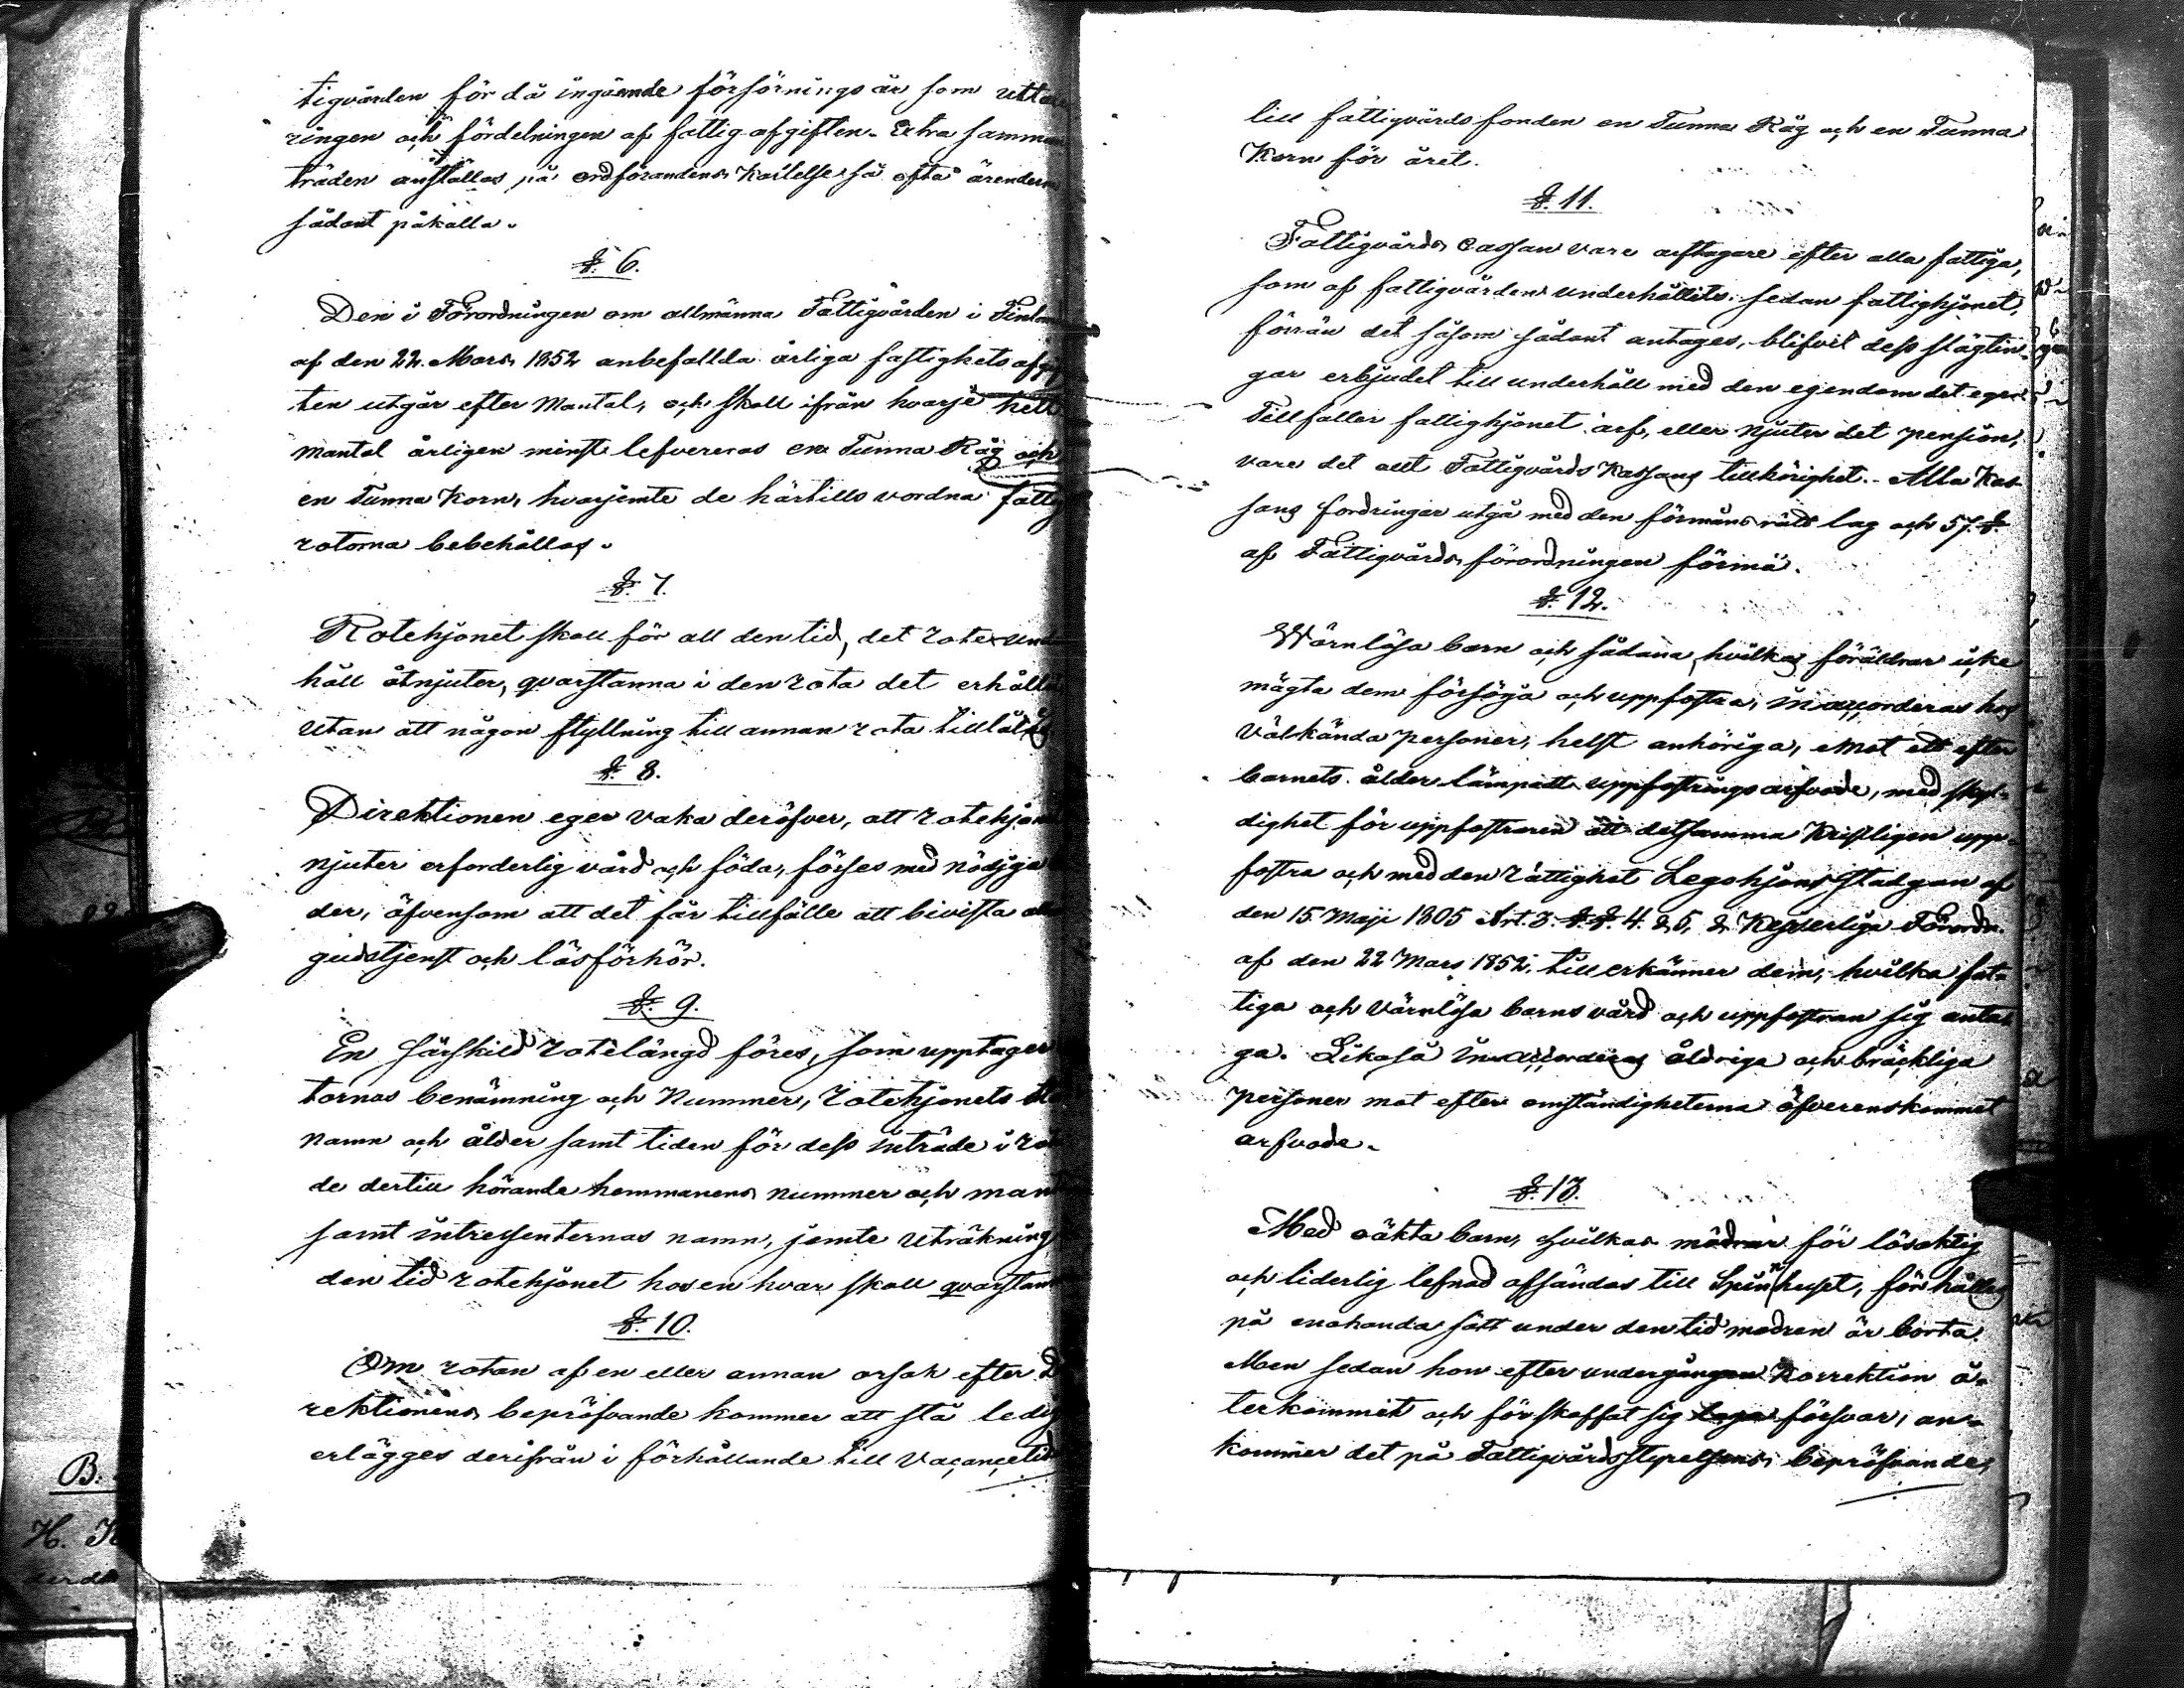 tigvården för då ingående försörjnings år som utta
ringen och fördelningen af fattig afgiften. Extra samman
träden anställas på ordförandens kallelse så ofta ärendena
sådant påkalla.
§. 6.
Den i Förordningen om allmänna Fattigvården i Finland
af den 22. Mars 1852 anbefallda årliga fastighets afgif
ten utgår efter Mantal, och skall ifrån hvarje helt
mantal årligen minst lefvereras en Tunna Råg och
en Tunna Korn, hvarjemte de härtills vordna fattig
rotorna bebehållas.
§. 7.
Rotehjonet skall för all den tid, det rote und
håll åtnjuter, qvarstanna i den rota det erhållit
utan att någon flyttning till annan rota tillåtes
§. 8.
Direktionen eger vaka deröfver, att rotehjonet
njuter erforderlig vård och föda, förses med nödiga
der, äfvensom att det får tillfälle att bivista all
gudstjenst och läsförhör.
§. 9.
En särskild rotelängd föres, som upptager
tornas benämning och Nummer, rotehjonets
namn och ålder samt tiden för dess inträde i ro
de dertill hörande hemmanens nummer och mant
samt intressenternas namn, jemte uträkning
den tid rotehjonet hos en hvar skall qvarstan
§. 10.
Om rotan af en eller annan orsak efter Di
rektionens bepröfvande kommer att stå ledig
erlägges derifrån i förhållande till Vacancetid
till fattigvårds fonden en Tunna Råg och en Tunna
Korn för året.
§. 11.
Fattigvårds Cassan vare arftagare efter alla fattiga,
som af fattigvården underhållits: sedan fattighjonet,
förrän det såsom sådant antages, blifvit dess slägtin-
gar erbjudet till underhåll med den egendom det eger.
Tillfaller fattighjonet arf, eller njuter det pension,
vare det allt Fattigvårds Kassans tillhörighet. Alla Kas-
sans fordringar utgå med den förmåns rätt lag och 57. §.
af Fattigvårds förordningen förmå.
§. 12.
Wärnlösa barn och sådana, hvilkas föräldrar icke
mägta dem försörja och uppfostra, inaccorderas hos
Välkända personer, helst anhöriga, emot ett efter
barnets ålder lämpadt uppfostrings arfvode, med skyl-
dighet för uppfostraren att detsamma Kristligen upp-
fostra och med den rättighet Legohjons Stadgan af
den 15 Maji 1805 Art. 3. §. §. 4. & 5. & Kejserliga Förordn.
af den 22 Mars 1852, till erkänner dem, hvilka fat-
tiga och värnlösa barns vård och uppfostran sig anta-
ga. Likaså inaccorderas åldriga och bräckliga
personer mot efter omständigheterna öfverenskommet
arfvode.
§. 13.
Med oäkta barn, hvilkas mödrar för lösaktig
och liderlig lefnad afsändas till Spinnhuset, förhålles
på enahanda sätt under den tid modren är borta.
Men sedan hon efter undergången Korrektion å-
terkommit och förskaffat sig laga försvar, an-
kommer det på Fattigvårdsstyrelsens bepröfvande,
B.